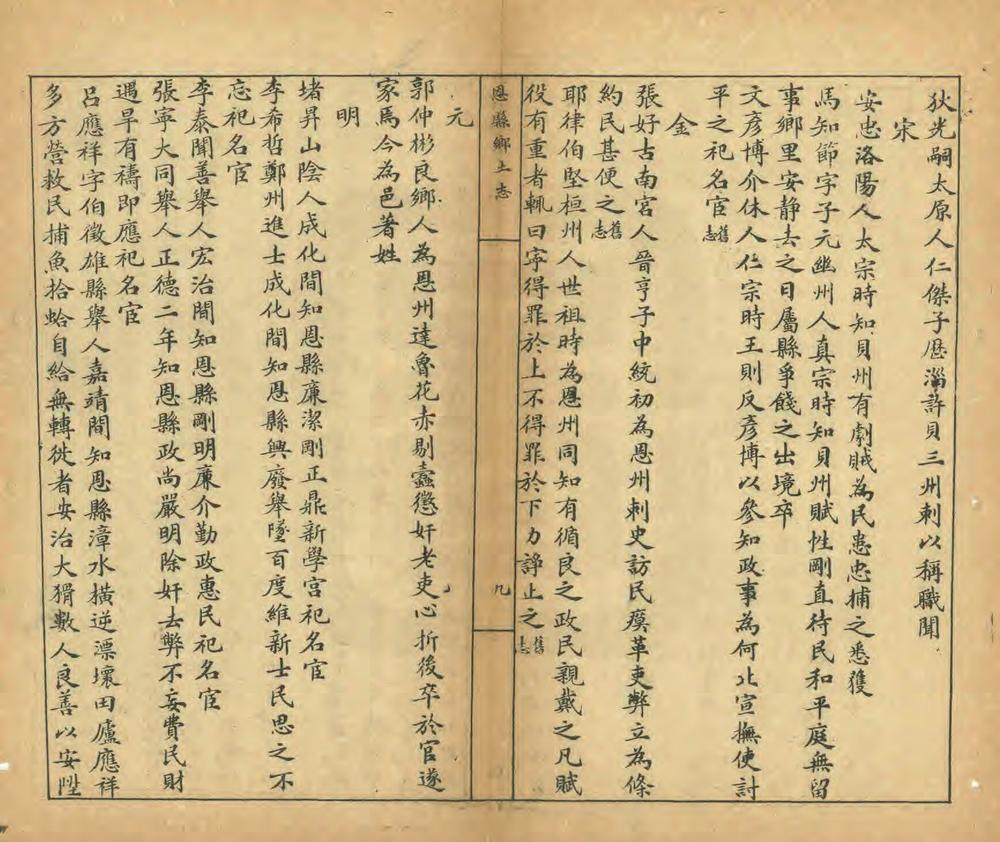 狄光嗣太原人仁傑子歷淄許貝三州刺以稱職聞
宋
安忠洛陽人太宗時知貝州有劇賊為民患忠捕之悉獲
馬知節字子元幽州人真宗時知貝州賦性剛直待民和平庭無留
事鄉里安静去之日屬縣爭餞之出境卒
文彦博介休人仁宗時王則反彦博以參知政事為何北宣撫使討
平之祀名宦舊志
金
張好古南宮人晉亨子中統初為恩州刺史訪民瘼革吏弊立為條
約民甚便之舊志
耶律伯堅桓州人世祖時為恩州同知有循良之政民親戴之凡賦
役有重者輒曰寧得罪於上不得罪於下力諍止之舊志
恩縣鄉土志
九
元
郭仲彬良鄉人為恩州達魯花赤剔蠹懲奸老吏心折後卒於官遂
家焉今為邑著姓
明
堵昇山陰人成化間知恩縣廉潔剛正鼎新學宮祀名宦
李希哲鄭州進士成化間知恩縣興廢舉墜百度維新士民思之不
忘祀名宦
李泰聞善舉人宏治間知恩縣剛明廉介勤政惠民祀名宦
張寧大同舉人正德二年知恩縣政尚嚴明除奸去弊不妄費民財
遇旱有禱即應祀名宦
呂應祥字伯徵雄縣舉人嘉靖間知恩縣漳水橫逆漂壞田廬應祥
多方營救民捕魚拾蛤自給無轉徙者安治大猾數人良善以安陞